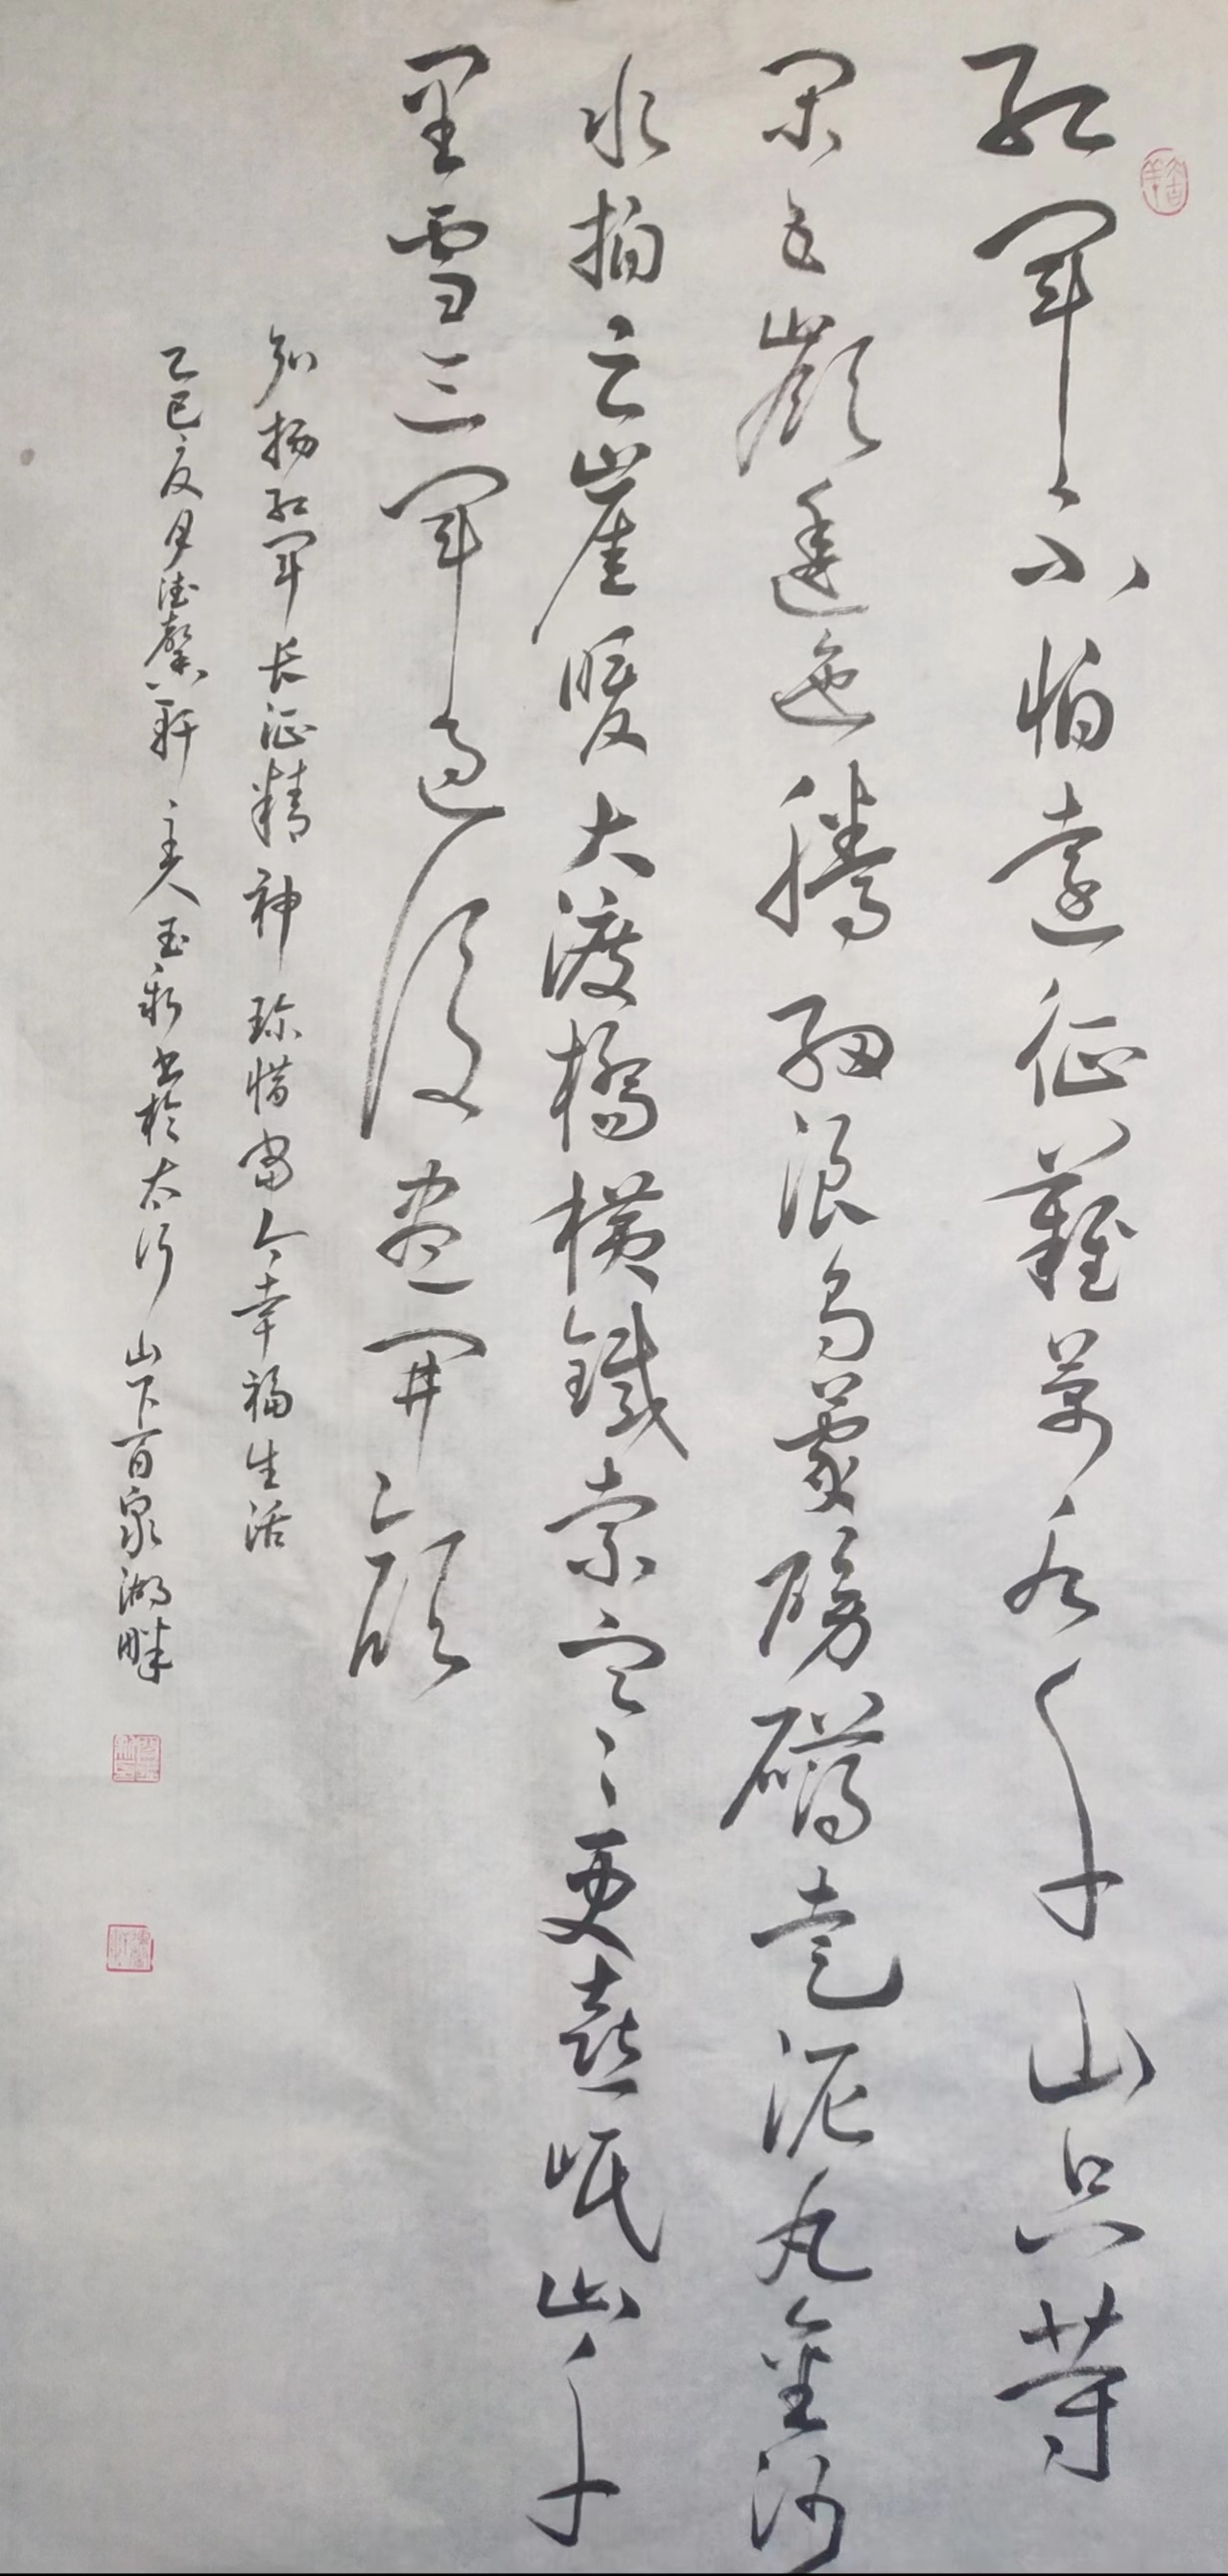 红军不怕遠征難萬水千山只等
闲五嶺逶迤腾细浪烏蒙磅礴走泥丸金沙
水拍云崖暖大渡橋横鐵索寒更喜岷山千
里雪三军过後盡開颜
弘扬红军长征精神珍惜当今幸福生活
乙巳夏月德馨轩主人玉彩书於太行山下百泉湖畔